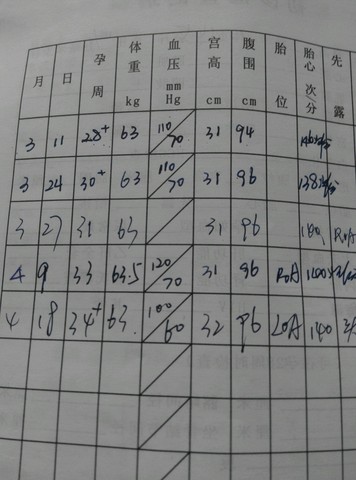 月 日 孕周 体重 kg 血压 mm Hg 宫高 cm 腹围 cm 胎位 胎心 次/分 先露
3 11 28+ 63 110/70 31 94 146次/分
3 24 30+ 63 110/70 31 96 138次/分
3 27 31 63 31 96 140 ROA
4 9 33 63.5 120/70 31 96 ROA
4 18 34+ 63 100/60 32 96 LOA 140